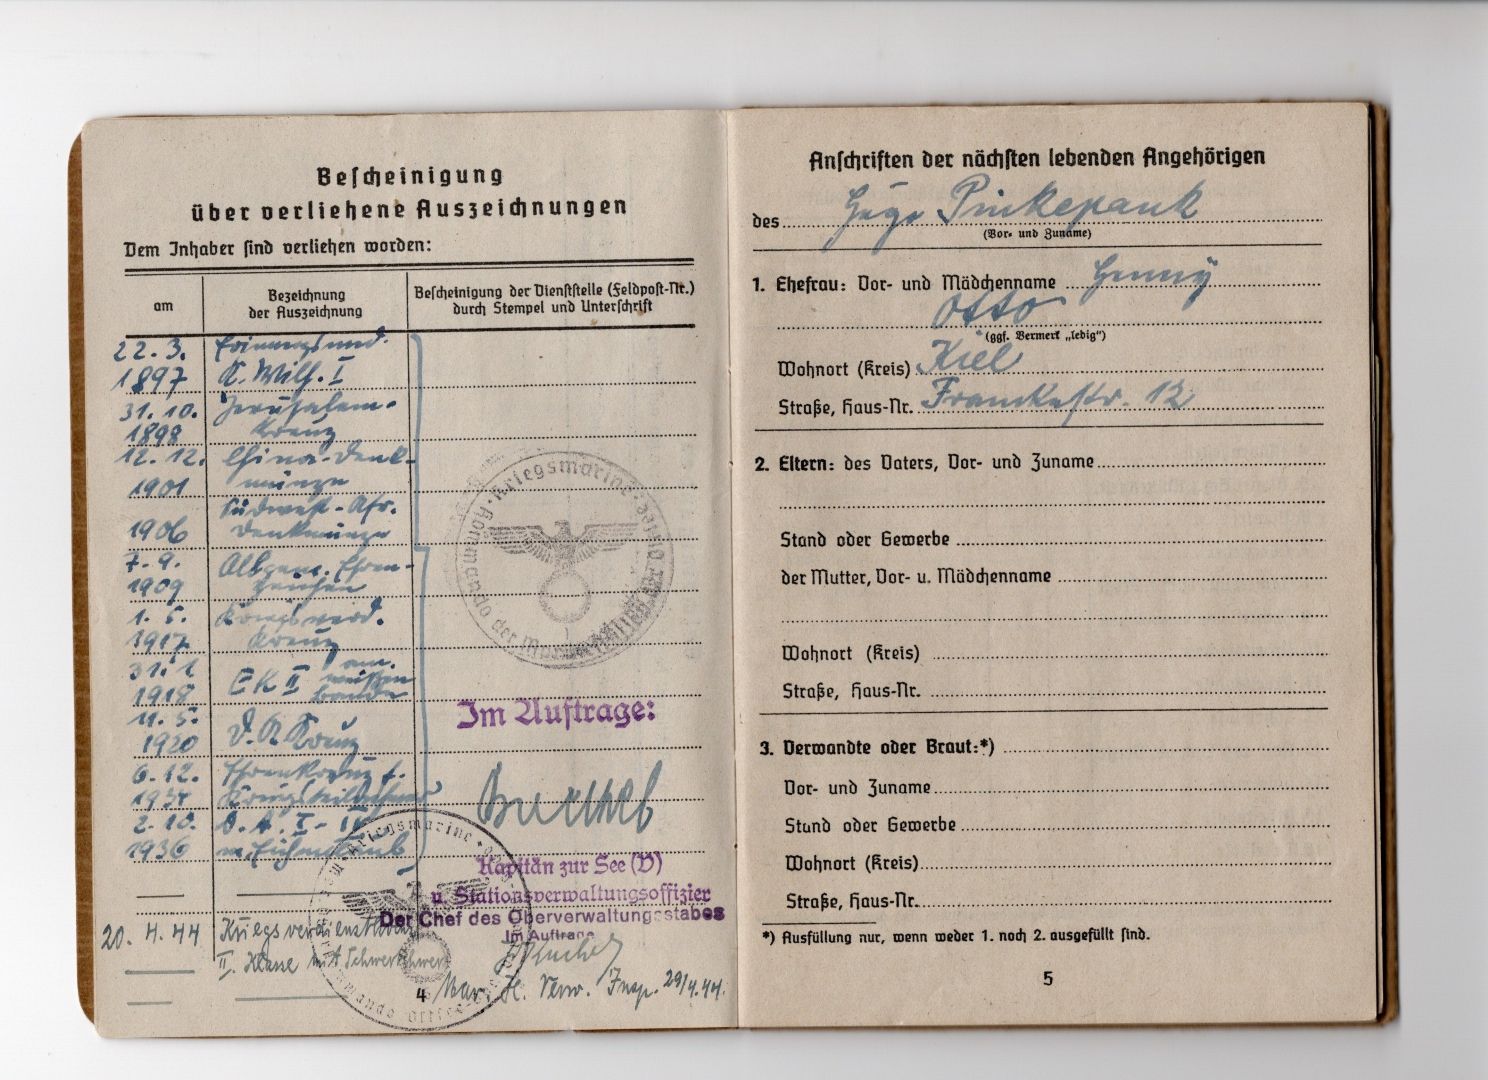 Bescheinigung
über verliehene Auszeichnungen
Dem Inhaber sind verliehen worden:
am
Bezeichnung
der Auszeichnung
Bescheinigung der Dienststelle (Feldpost-Nr.)
durch Stempel und Unterschrift
22.3.
1897
K. Wilh. I
31.10.
1898
Jerusalem-
Kreuz
12.12.
1901
China-Denk-
münze
1906
Südwest-Afr.
Denkmünze
7.9.
1909
Allgem. Ehren-
zeichen
1.5.
1917
Kriegsverd.
Kreuz
31.1
1918
EK II am
weißen
Bande
11.5.
1920
Kreuz
6.12.
1934
Ehrenkreuz f.
Kriegsteilnehmer
2.10.
1936
D.A. I-
m. Eichenlaub
Kriegsmarine
Kommando der Marinestation der Ostsee
Im Auftrage:
Kapitän zur See (V)
u. Stationsverwaltungsoffizier
Der Chef des Oberverwaltungsstabes
Im Auftrage
20.4.44
Kriegsverdienstkreuz
II. Klasse mit Schwertern
Kriegsmarine
Mar. Verw. Insp. 29/4.44.
4
Anschriften der nächsten lebenden Angehörigen
des Hugo Pinkepank
(Vor- und Zuname)
1. Ehefrau: Vor- und Mädchenname Henny
Otto
(ggf. Vermerk „ledig“)
Wohnort (Kreis) Kiel
Straße, Haus-Nr. Franckestr. 12
2. Eltern: des Vaters, Vor- und Zuname
Stand oder Gewerbe
der Mutter, Vor- u. Mädchenname
Wohnort (Kreis)
Straße, Haus-Nr.
3. Verwandte oder Braut:*)
Vor- und Zuname
Stand oder Gewerbe
Wohnort (Kreis)
Straße, Haus-Nr.
*) Ausfüllung nur, wenn weder 1. noch 2. ausgefüllt sind.
5